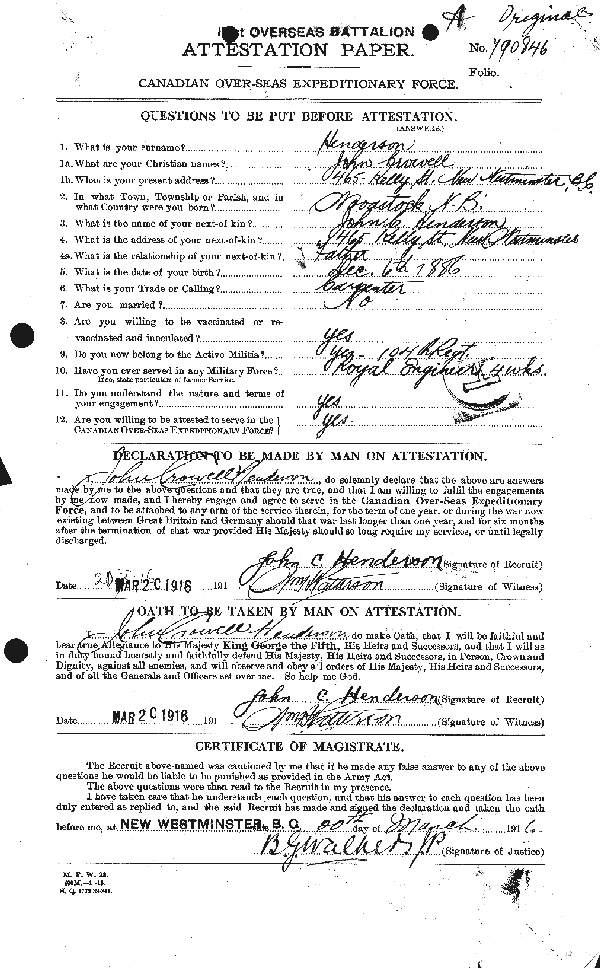 OVERSEAS BATTALION
A Original
ATTESTATION PAPER.
No. 790946
Folio.
CANADIAN OVER-SEAS EXPEDITIONARY FORCE.
QUESTIONS TO BE PUT BEFORE ATTESTATION.
(ANSWERS.)
1. What is your surname? Henderson
1a. What are your Christian names? John Crowell
1b. What is your present address? 465 Kelly St. New Westminster, B.C.
2. In what Town, Township or Parish, and in
what Country were you born? N.B.
3. What is the name of your next-of kin? John C Henderson
4. What is the address of your next-of-kin? 465 Kelly St. New Westminster
4a. What is the relationship of your next-of-kin? Father
5. What is the date of your birth? Dec. 6th 1886
6. What is your Trade or Calling? Carpenter
7. Are you married? No
8. Are you willing to be vaccinated or re-
vaccinated and inoculated? yes
9. Do you now belong to the Active Militia? yes - 104th Regt.
10. Have you ever served in any Military Force? Royal Engineers 4 wks.
If so, state particulars of former Service.
11. Do you understand the nature and terms of
your engagement? yes
12. Are you willing to be attested to serve in the
CANADIAN OVER-SEAS EXPEDITIONARY FORCE? yes.
DECLARATION TO BE MADE BY MAN ON ATTESTATION.
I, John Crowell Henderson, do solemnly declare that the above are answers
made by me to the above questions and that they are true, and that I am willing to fulfil the engagements
by me now made, and I hereby engage and agree to serve in the Canadian Over-Seas Expeditionary
Force, and to be attached to any arm of the service therein, for the term of one year, or during the war now
existing between Great Britain and Germany should that war last longer than one year, and for six months
after the termination of that war provided His Majesty should so long require my services, or until legally
discharged.
John C Henderson (Signature of Recruit)
Date MAR 20 1916 191 (Signature of Witness)
OATH TO BE TAKEN BY MAN ON ATTESTATION.
I, John Crowell Henderson, do make Oath, that I will be faithful and
bear true Allegiance to His Majesty King George the Fifth, His Heirs and Successors, and that I will as
in duty bound honestly and faithfully defend His Majesty, His Heirs and Successors, in Person, Crown and
Dignity, against all enemies, and will observe and obey all orders of His Majesty, His Heirs and Successors,
and of all the Generals and Officers set over me. So help me God.
John C Henderson (Signature of Recruit)
Date MAR 20 1916 191 (Signature of Witness)
CERTIFICATE OF MAGISTRATE.
The Recruit above-named was cautioned by me that if he made any false answer to any of the above
questions he would be liable to be punished as provided in the Army Act.
The above questions were then read to the Recruit in my presence.
I have taken care that he understands each question, and that his answer to each question has been
duly entered as replied to, and the said Recruit has made and signed the declaration and taken the oath
before me, at NEW WESTMINSTER, B. C. day of March 1916
(Signature of Justice)
M. F. W. 23.